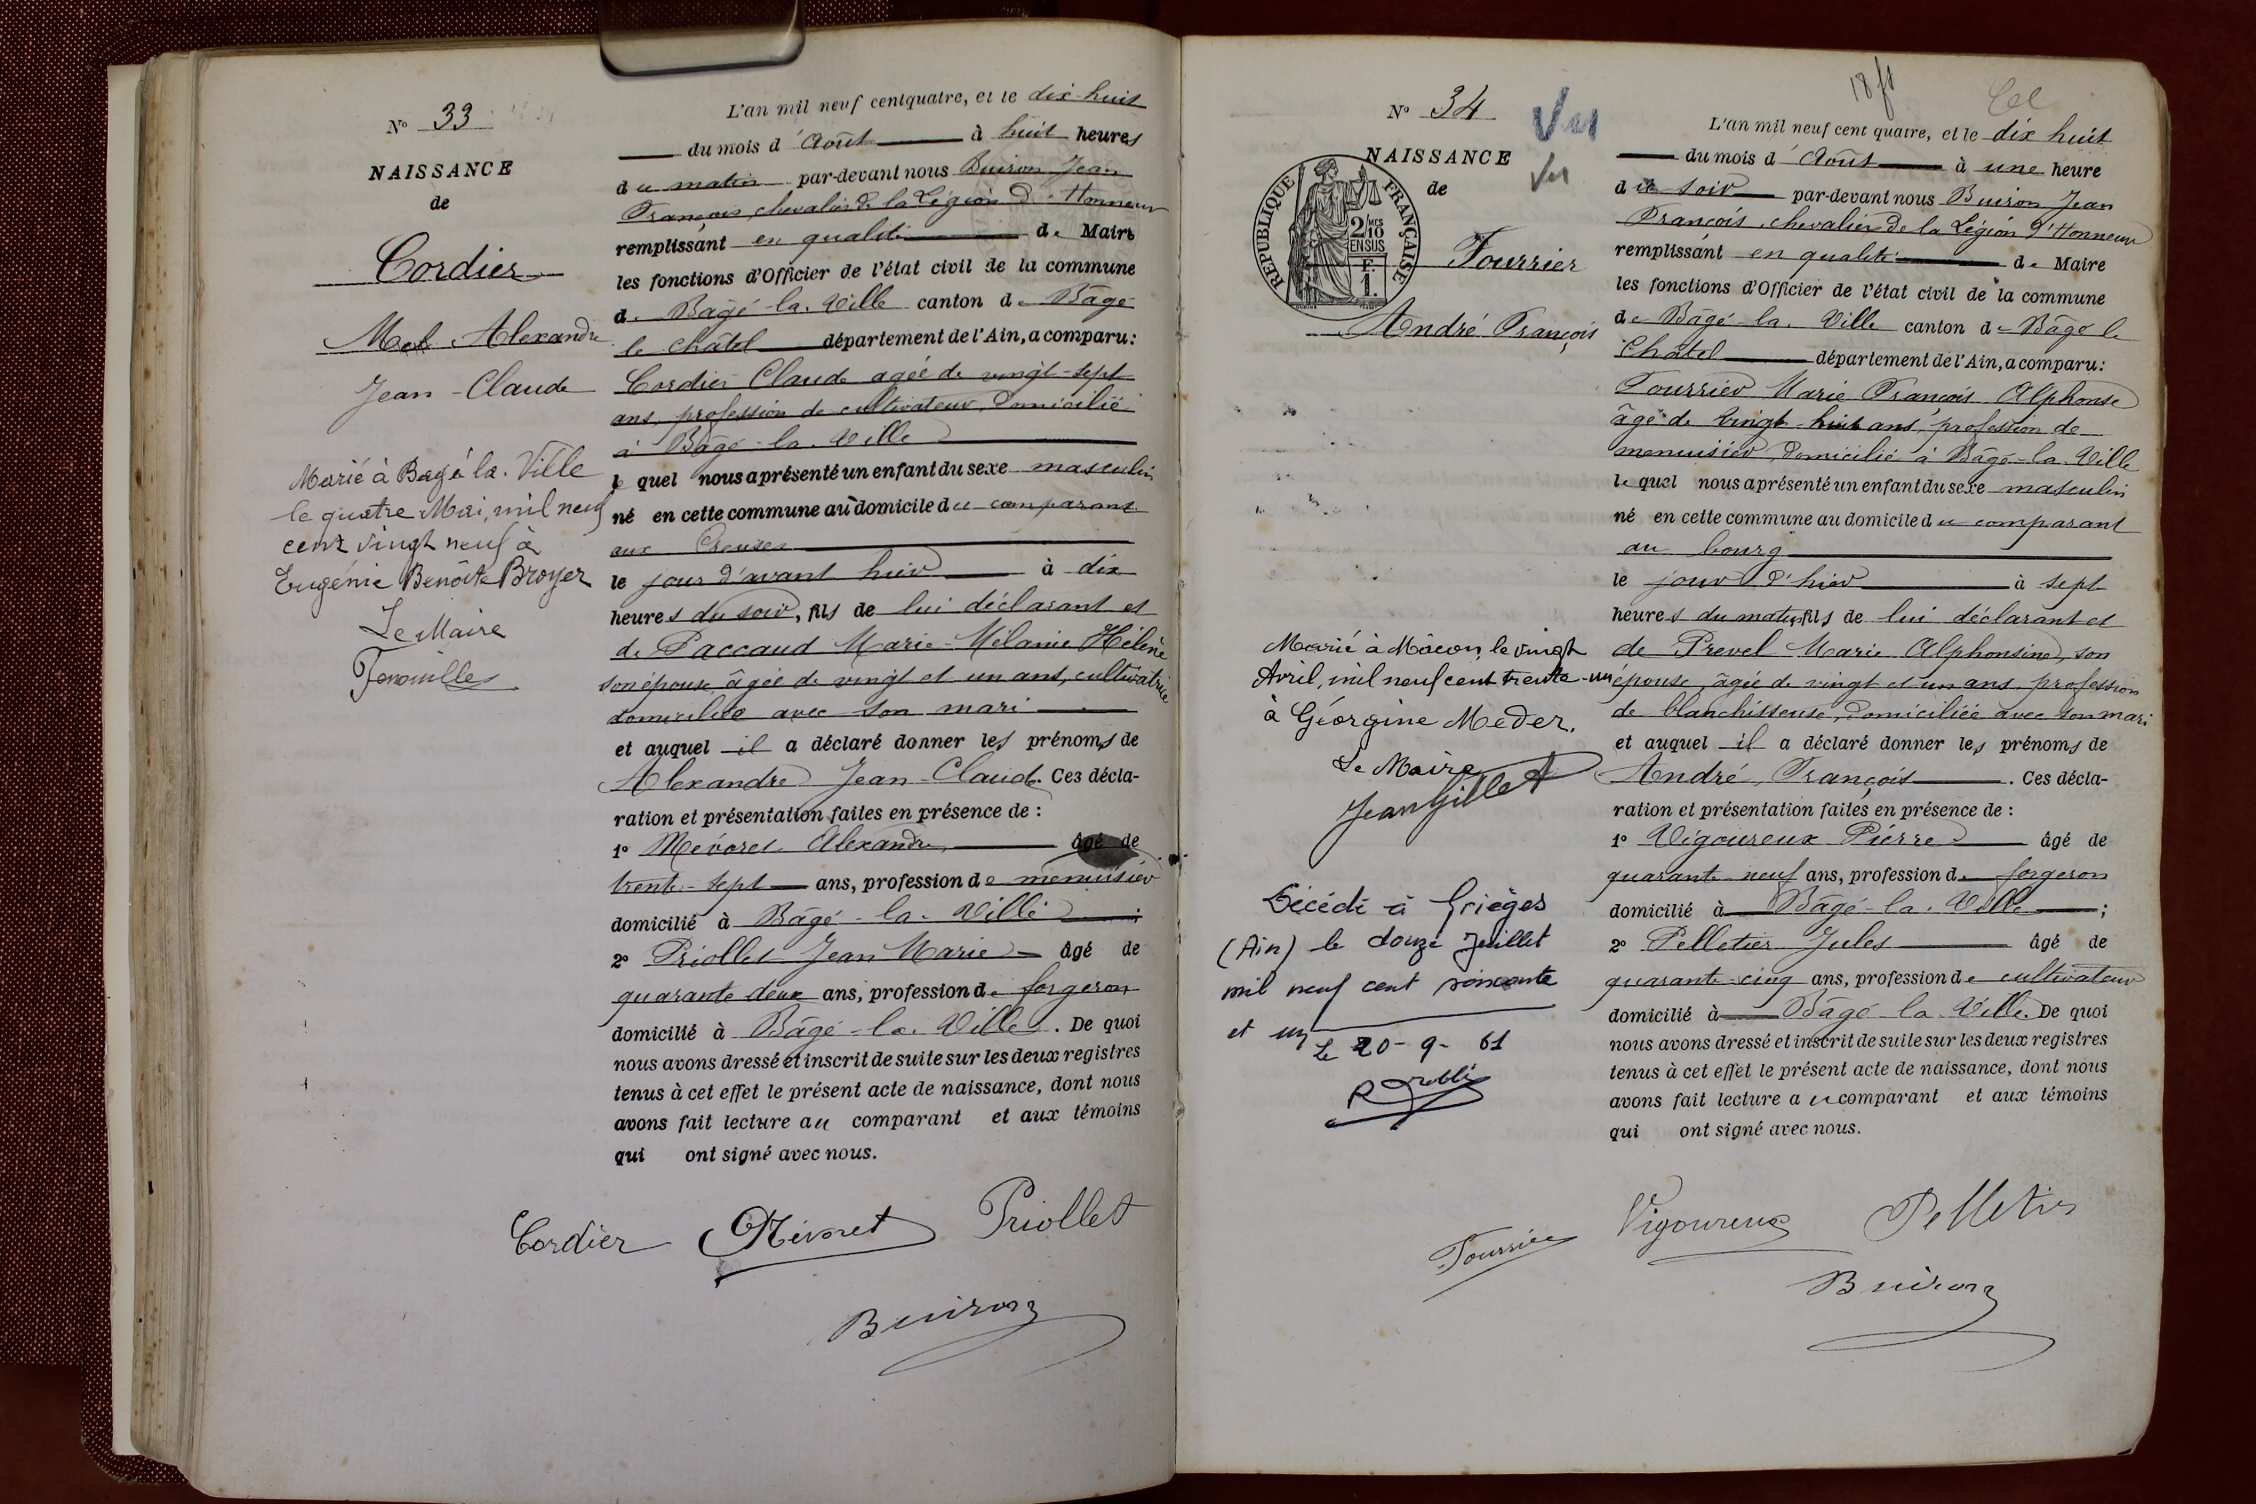 N° 33
NAISSANCE
de
Cordier
Alexandre
Jean-Claude
Marié à Bagé la Ville
le quatre Mai, mil neuf
cent vingt neuf à
Eugénie Benoîte Broyer
Le Maire
L'an mil neuf centquatre, et le dix-huit
du mois d'Août à huit heures
du matin par-devant nous Buiron Jean
François, chevalier de la Légion d'Honneur
remplissant en qualité de Maire
les fonctions d'Officier de l'état civil de la commune
de Bâgé-la-Ville canton de Bâgé
le Châtel département de l'Ain, a comparu:
Cordier Claude agée de vingt-sept
ans, profession de cultivateur, domicilié
à Bâgé-la-Ville
le quel nous a présenté un enfant du sexe masculin
né en cette commune au domicile du comparant
aux
le jour d'avant hier à dix
heures du soir, fils de lui déclarant et
de Paccaud Marie-Mélanie Hélène
son épouse, âgée de vingt et un ans, cultivatrice
domiciliée avec son mari
et auquel il a déclaré donner les prénoms de
Alexandre Jean-Claude. Ces décla-
ration et présentation faites en présence de :
1° Mévoret Alexandre âgé de
trente-sept ans, profession de menuisier
domicilié à Bâgé-la-Ville ;
2° Priollet Jean Marie âgé de
quarante deux ans, profession de forgeron
domicilié à Bâgé-la-Ville. De quoi
nous avons dressé et inscrit de suite sur les deux registres
tenus à cet effet le présent acte de naissance, dont nous
avons fait lecture au comparant et aux témoins
qui ont signé avec nous.
Cordier Mévoret Priollet
Buiron
18 ft
N° 34
NAISSANCE
de
REPUBLIQUE FRANÇAISE
2/10 MES
EN SUS
F.
1.
Fourrier
André François
Marié à Mâcon, le vingt
Avril, mil neuf cent trente-un
à Géorgine Meder.
Le Maire
Jean Gillet
Décédé à Grièges
(Ain) le douze Juillet
mil neuf cent soixante
et un
Le 20-9-61
L'an mil neuf cent quatre, et le dix huit
du mois d'Août à une heure
du soir par-devant nous Buiron Jean
François, chevalier de la Légion d'Honneur
remplissant en qualité de Maire
les fonctions d'Officier de l'état civil de la commune
de Bâgé-la-Ville canton de Bâgé le
Châtel département de l'Ain, a comparu:
Fourrier Marie François Alphonse
âgé de vingt-huit ans, profession de
menuisier, domicilié à Bâgé-la-Ville
le quel nous a présenté un enfant du sexe masculin
né en cette commune au domicile du comparant
au bourg
le jour d'hier à sept
heures du matin, fils de lui déclarant et
de Prevel Marie Alphonsine, son
épouse, âgée de vingt et un ans, profession
de blanchisseuse, domiciliée avec son mari
et auquel il a déclaré donner les prénoms de
André, François. Ces décla-
ration et présentation faites en présence de :
1° Vigoureux Pierre âgé de
quarante neuf ans, profession de forgeron
domicilié à Bâgé-la-Ville ;
2° Pelletier Jules âgé de
quarante-cinq ans, profession de cultivateur
domicilié à Bâgé-la-Ville. De quoi
nous avons dressé et inscrit de suite sur les deux registres
tenus à cet effet le présent acte de naissance, dont nous
avons fait lecture au comparant et aux témoins
qui ont signé avec nous.
Fourrier Vigoureux Pelletier
Buiron